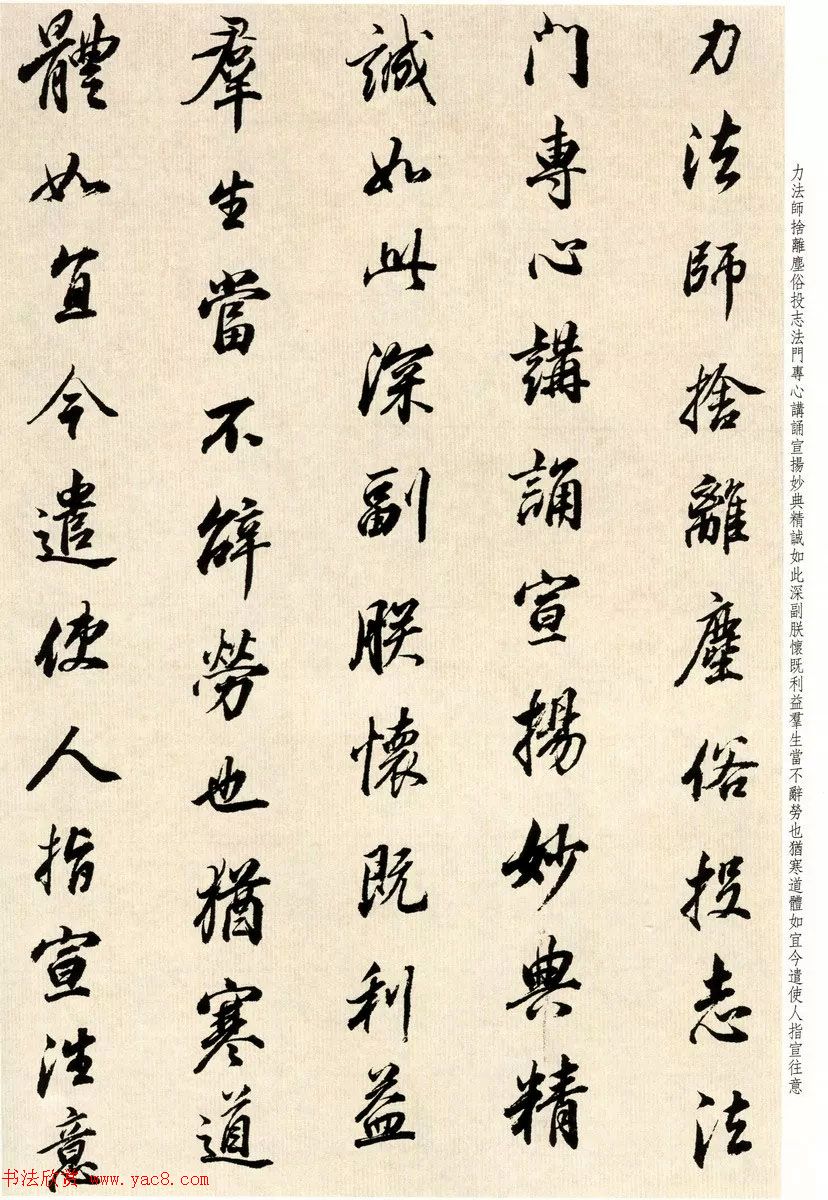 力法師捨離塵俗投志法
門專心講誦宣揚妙典精
誠如此深副朕懷既利益
羣生當不辭勞也猶寒道
體如宜今遣使人指宣往意
力法師捨離塵俗投志法門專心講誦宣揚妙典精誠如此深副朕懷既利益羣生當不辭勞也猶寒道體如宜今遣使人指宣往意
书法欣赏 www.yac8.com